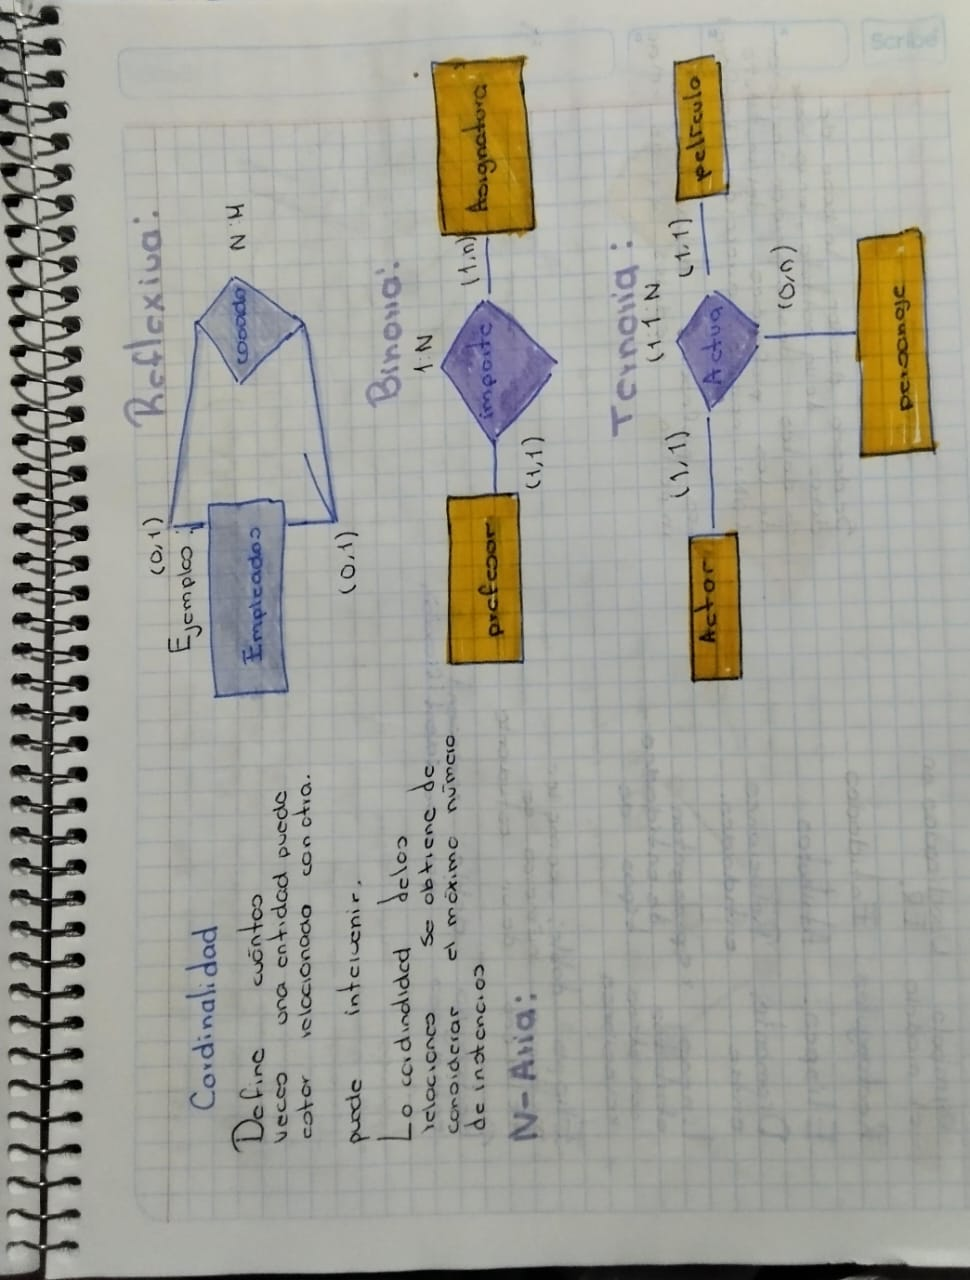 Cardinalidad
Define cuántas
veces una entidad puede
estar relacionada con otra.
puede intervenir.
La cardindidad de las
relaciones se obtiene de
considerar el máximo número
de instancias
N-Aria:
Ejemplos:
Reflexiva:
(0,1)
Empleados
(0,1)
casado
N:M
Binaria:
1:N
profesor
(1,1)
imparte
(1,n)
Asignatura
Ternaria:
(1:1:N
Actor
(1,1)
Actua
(1,1)
película
(0,n)
personaje
Scribe